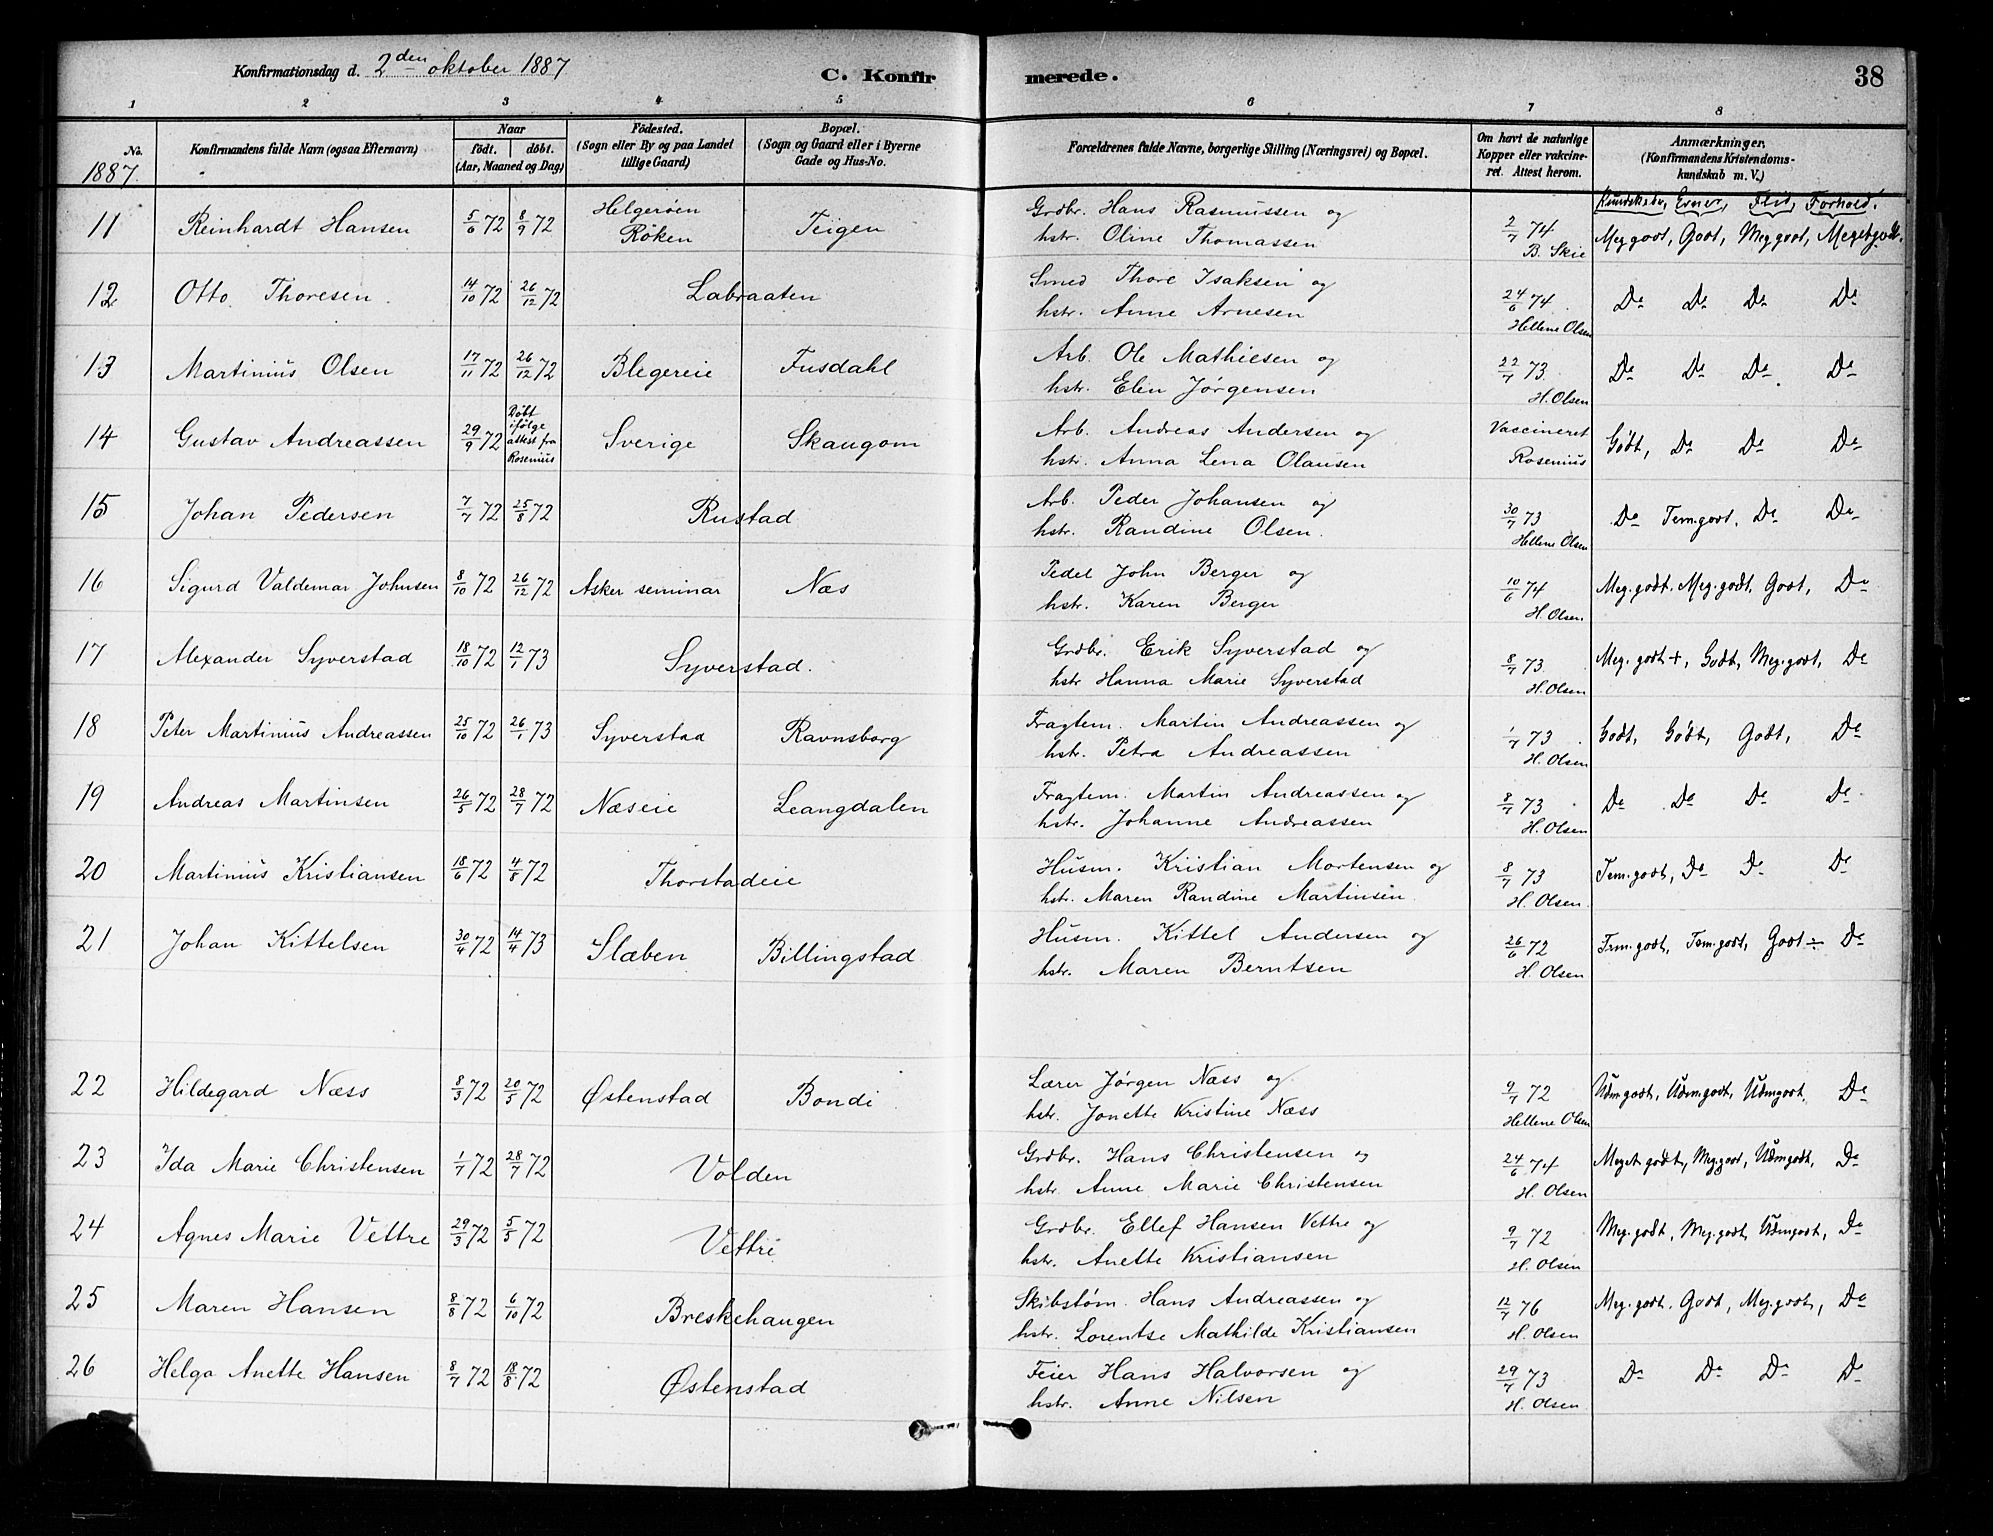 Konfirmationsdag d. 2den oktober 1887
C. Konfirmerede.
38
1 2 3 4 5 6 7 8
No. Konfirmandens fulde Navn (ogsaa Efternavn) Naar födt. döbt. (Aar, Maaned og Dag) Födested. (Sogn eller By og paa Landet tillige Gaard) Bopæl. (Sogn og Gaard eller i Byerne Gade og Hus-No. Forældrenes fulde Navne, borgerlige Stilling (Næringsvei) og Bopæl. Om havt de naturlige Kopper eller vakcineret. Attest herom. Anmærkninger, (Konfirmandens Kristendomskundskab m. V.)
1887.
Kundskaber, Evner, Flid, Forhold.
11 Reinhardt Hansen 5/6 72 8/9 72 Helgerøen Røken Teigen Grdbr. Hans Rasmussen og
hstr. Oline Thomassen 2/7 74 B. Skie Meg godt, Godt, Meg godt, Meget godt.
12 Otto Thoresen 14/10 72 26/12 72 Labraaten Smed Thore Isaksen og
hstr. Anne Arnesen 24/6 74 Hellene Olsen Do Do Do Do
13 Martinius Olsen 17/11 72 26/12 72 Blegereie Fusdahl Arb. Ole Mathiesen og
hstr. Elin Jørgensen 22/7 73 H. Olsen Do Do Do Do
14 Gustav Andreassen 29/9 72 Døbt ifølge attest fra Rosenius Sverige Skaugom Arb. Andreas Andersen og
hstr. Anna Lena Olausen Vaccineret Rosenius Godt, Do Do Do
15 Johan Pedersen 7/7 72 25/8 72 Rustad Arb. Peder Johansen og
hstr. Randine Olsen. 30/7 73 Hellene Olsen Do Tem. godt, Do Do
16 Sigurd Valdemar Johnsen 8/10 72 26/12 72 Asker seminar Næs Pedel John Berger og
hstr. Karen Berger 10/6 74 H. Olsen Meg. godt. Meg. godt, Godt, Do
17 Alexander Syverstad 18/10 72 12/1 73 Syverstad. Grdbr. Erik Syverstad og
hstr Hanna Marie Syverstad 8/7 73 H. Olsen Meg. godt +, Godt, Meg. godt, Do
18 Peter Martinius Andreassen 25/10 72 26/1 73 Syverstad Ravnsborg Fragtem. Martin Andreassen og
hstr. Petra Andreassen 1/7 73 H. Olsen Godt, Godt, Godt, Do
19 Andreas Martinsen 26/5 72 28/7 72 Næseie Leangdalen Fragtem. Martin Andreassen og
hstr. Johanne Andreassen 8/7 73 H. Olsen Do Do Do Do
20 Martinius Kristiansen 18/6 72 4/8 72 Thorstadeie Husm. Kristian Mortensen og
hstr. Maren Randine Martinsen 8/7 73 H. Olsen. Tem. godt, Do Do Do
21 Johan Kittelsen 30/4 72 14/4 73 Slæben Billingstad Husm. Kittel Andersen og
hstr. Maren Berntsen 26/6 72 H. Olsen Tem. godt, Tem. godt, Godt ÷ Do
22 Hildegard Næss 8/3 72 20/5 72 Østenstad Bondi Lærer Jørgen Næss og
hstr. Jonette Kristine Næss 9/7 72 Hellene Olsen Udm godt, Udm. godt, Udm godt, Do
23 Ida Marie Christensen 1/7 72 28/7 72 Volden Grdbr. Hans Christensen og
hstr. Anne Marie Christensen 24/6 74 H. Olsen Meget godt, Meg godt, Udm godt, Do
24 Agnes Marie Vettre 29/3 72 5/5 72 Vettre Grdbr. Ellef Hansen Vettre og
hstr. Anette Kristiansen 9/7 72 H. Olsen Meg. godt, Meg. godt, Udm godt, Do
25 Maren Hansen 8/8 72 6/10 72 Breskehaugen Skibstøm. Hans Andreassen og
hstr. Lorentse Mathilde Kristiansen 12/7 76 H. Olsen Meg. godt. Godt, Meg. godt, Do
26 Helga Anette Hansen 8/7 72 18/8 72 Østenstad Feier Hans Halvorsen og
hstr. Anne Nilsen 29/7 73 H. Olsen Do Do Do Do